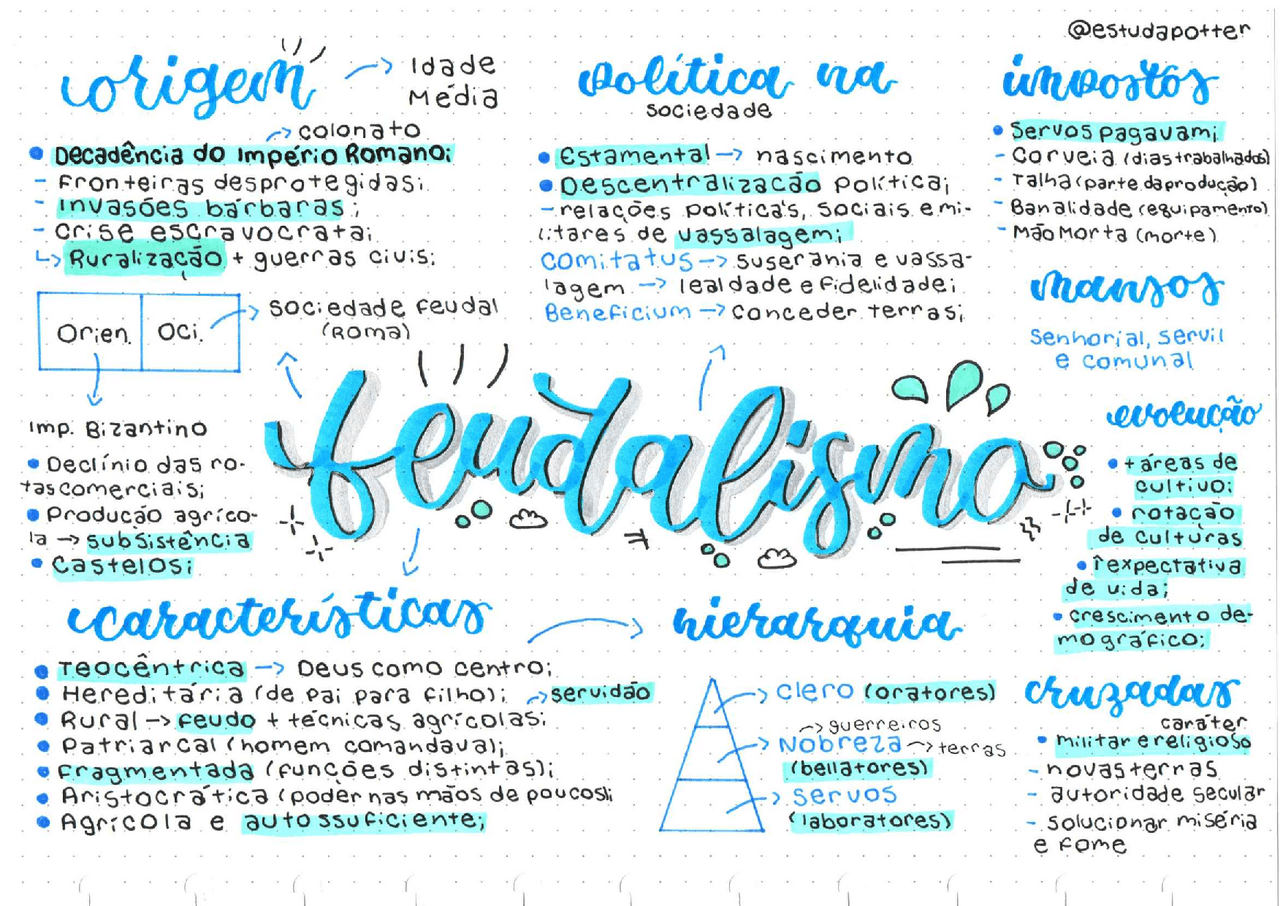 @estudapotter
origem → Idade
Média
→ colonato
• Decadência do Império Romano;
- Fronteiras desprotegidas;
- Invasões bárbaras;
- crise escravocrata;
↳ Ruralização + guerras civis;
Orien. Oci. → Sociedade Feudal
(Roma)
Imp. Bizantino
• Declínio das ro-
tas comerciais;
• Produção agríco-
la → subsistência
• Castelos;
política na
sociedade
• Estamental → nascimento
• Descentralização política;
- relações política's, sociais e mi-
litares de vassalagem;
Comitatus → suserania e vassa-
lagem → lealdade e fidelidade;
Beneficium → conceder terras;
impostos
• Servos pagavam;
- Corveia (dias trabalhados)
- Talha (parte da produção)
- Banalidade (equipamento)
- Mão Morta (morte)
mansos
Senhorial, servil
e comunal
feudalismo
evolução
• + áreas de
cultivo;
• rotação
de culturas
• ↑ expectativa
de vida;
• crescimento de-
mográfico;
características
• Teocêntrica → Deus como centro;
• Hereditária (de pai para filho);
→ servidão
• Rural → feudo + técnicas agrícolas;
• Patriarcal (homem comandava);
• Fragmentada (funções distintas);
• Aristocrática (poder nas mãos de poucos);
• Agrícola e autossuficiente;
hierarquia
→ Clero (oratores)
→ guerreiros
→ Nobreza → terras
(bellatores)
→ servos
(laboratores)
cruzadas
caráter
• militar e religioso
- novas terras
- autoridade secular
- solucionar miséria
e fome